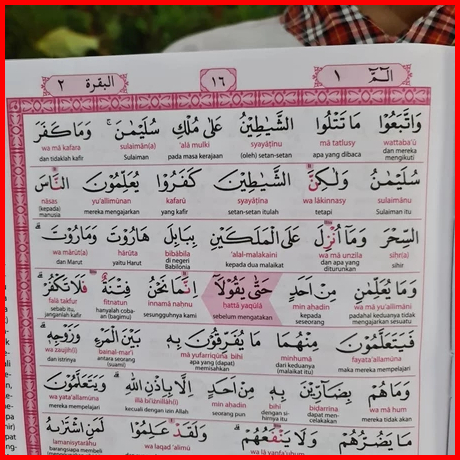 البقرة ٢ ١٦ الٓمّٓ ١
وَاتَّبَعُوْا مَا تَتْلُوا الشَّيٰطِيْنُ عَلٰى مُلْكِ سُلَيْمٰنَ ۚ وَمَا كَفَرَ
wattaba'ū mā tatlusy syayāṭīnu 'alā mulki sulaimān(a) wa mā kafara
dan mereka mengikuti apa yang dibaca (oleh) setan-setan pada masa kerajaan Sulaiman dan tidaklah kafir
سُلَيْمٰنُ وَلٰكِنَّ الشَّيٰطِيْنَ كَفَرُوْا يُعَلِّمُوْنَ النَّاسَ
sulaimānu wa lākinnasy syayāṭīna kafarū yu'allimūnan nāsas
Sulaiman itu tetapi setan-setan itulah yang kafir mereka mengajarkan (kepada) manusia
السِّحْرَ وَمَآ اُنْزِلَ عَلَى الْمَلَكَيْنِ بِبَابِلَ هَارُوْتَ وَمَارُوْتَ ۗ
siḥr(a) wa mā unzila 'alal-malakaini bibābila hārūta wa mārūt(a)
sihir dan apa yang diturunkan kepada dua malaikat di negeri Babilonia yaitu Harut dan Marut
وَمَا يُعَلِّمٰنِ مِنْ اَحَدٍ حَتّٰى يَقُوْلَآ اِنَّمَا نَحْنُ فِتْنَةٌ فَلَا تَكْفُرْ ۗ
wa mā yu'allimāni min aḥadin ḥattā yaqūlā innamā naḥnu fitnatun falā takfur
padahal keduanya tidak mengajarkan sesuatu kepada seseorang sebelum mengatakan sesungguhnya kami hanyalah cobaan (bagimu) sebab itu, janganlah kafir
فَيَتَعَلَّمُوْنَ مِنْهُمَا مَا يُفَرِّقُوْنَ بِهٖ بَيْنَ الْمَرْءِ وَزَوْجِهٖ ۗ
fayata'allamūna minhumā mā yufarriqūna bihī bainal-mar'i wa zaujih(ī)
maka mereka mempelajari dari keduanya (malaikat itu) apa yang (dapat) memisahkan antara seorang (suami) dan istrinya
وَمَا هُمْ بِضَاۤرِّيْنَ بِهٖ مِنْ اَحَدٍ اِلَّا بِاِذْنِ اللّٰهِ ۗ وَيَتَعَلَّمُوْنَ
wa mā hum biḍārrīna bihī min aḥadin illā bi'iżnillāh(i) wa yata'allamūna
dan mereka tidak akan dapat mencelakakan dengan sihirnya itu seorang pun kecuali dengan izin Allah mereka mempelajari
مَا يَضُرُّهُمْ وَلَا يَنْفَعُهُمْ ۗ وَلَقَدْ عَلِمُوْا لَمَنِ اشْتَرٰىهُ
wa lā yanfa'uhum wa laqad 'alimū lamanisytarāhu
barangsiapa membeli